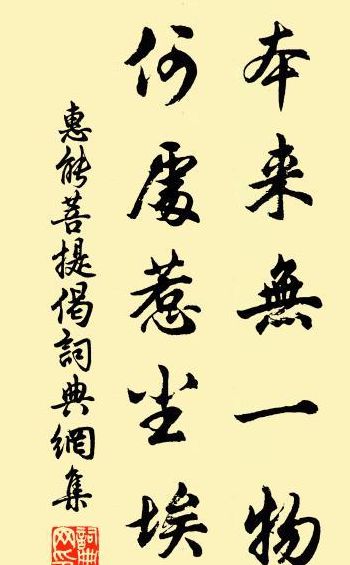 本来無一物
何處惹尘埃
惠能菩提偈詞典網集